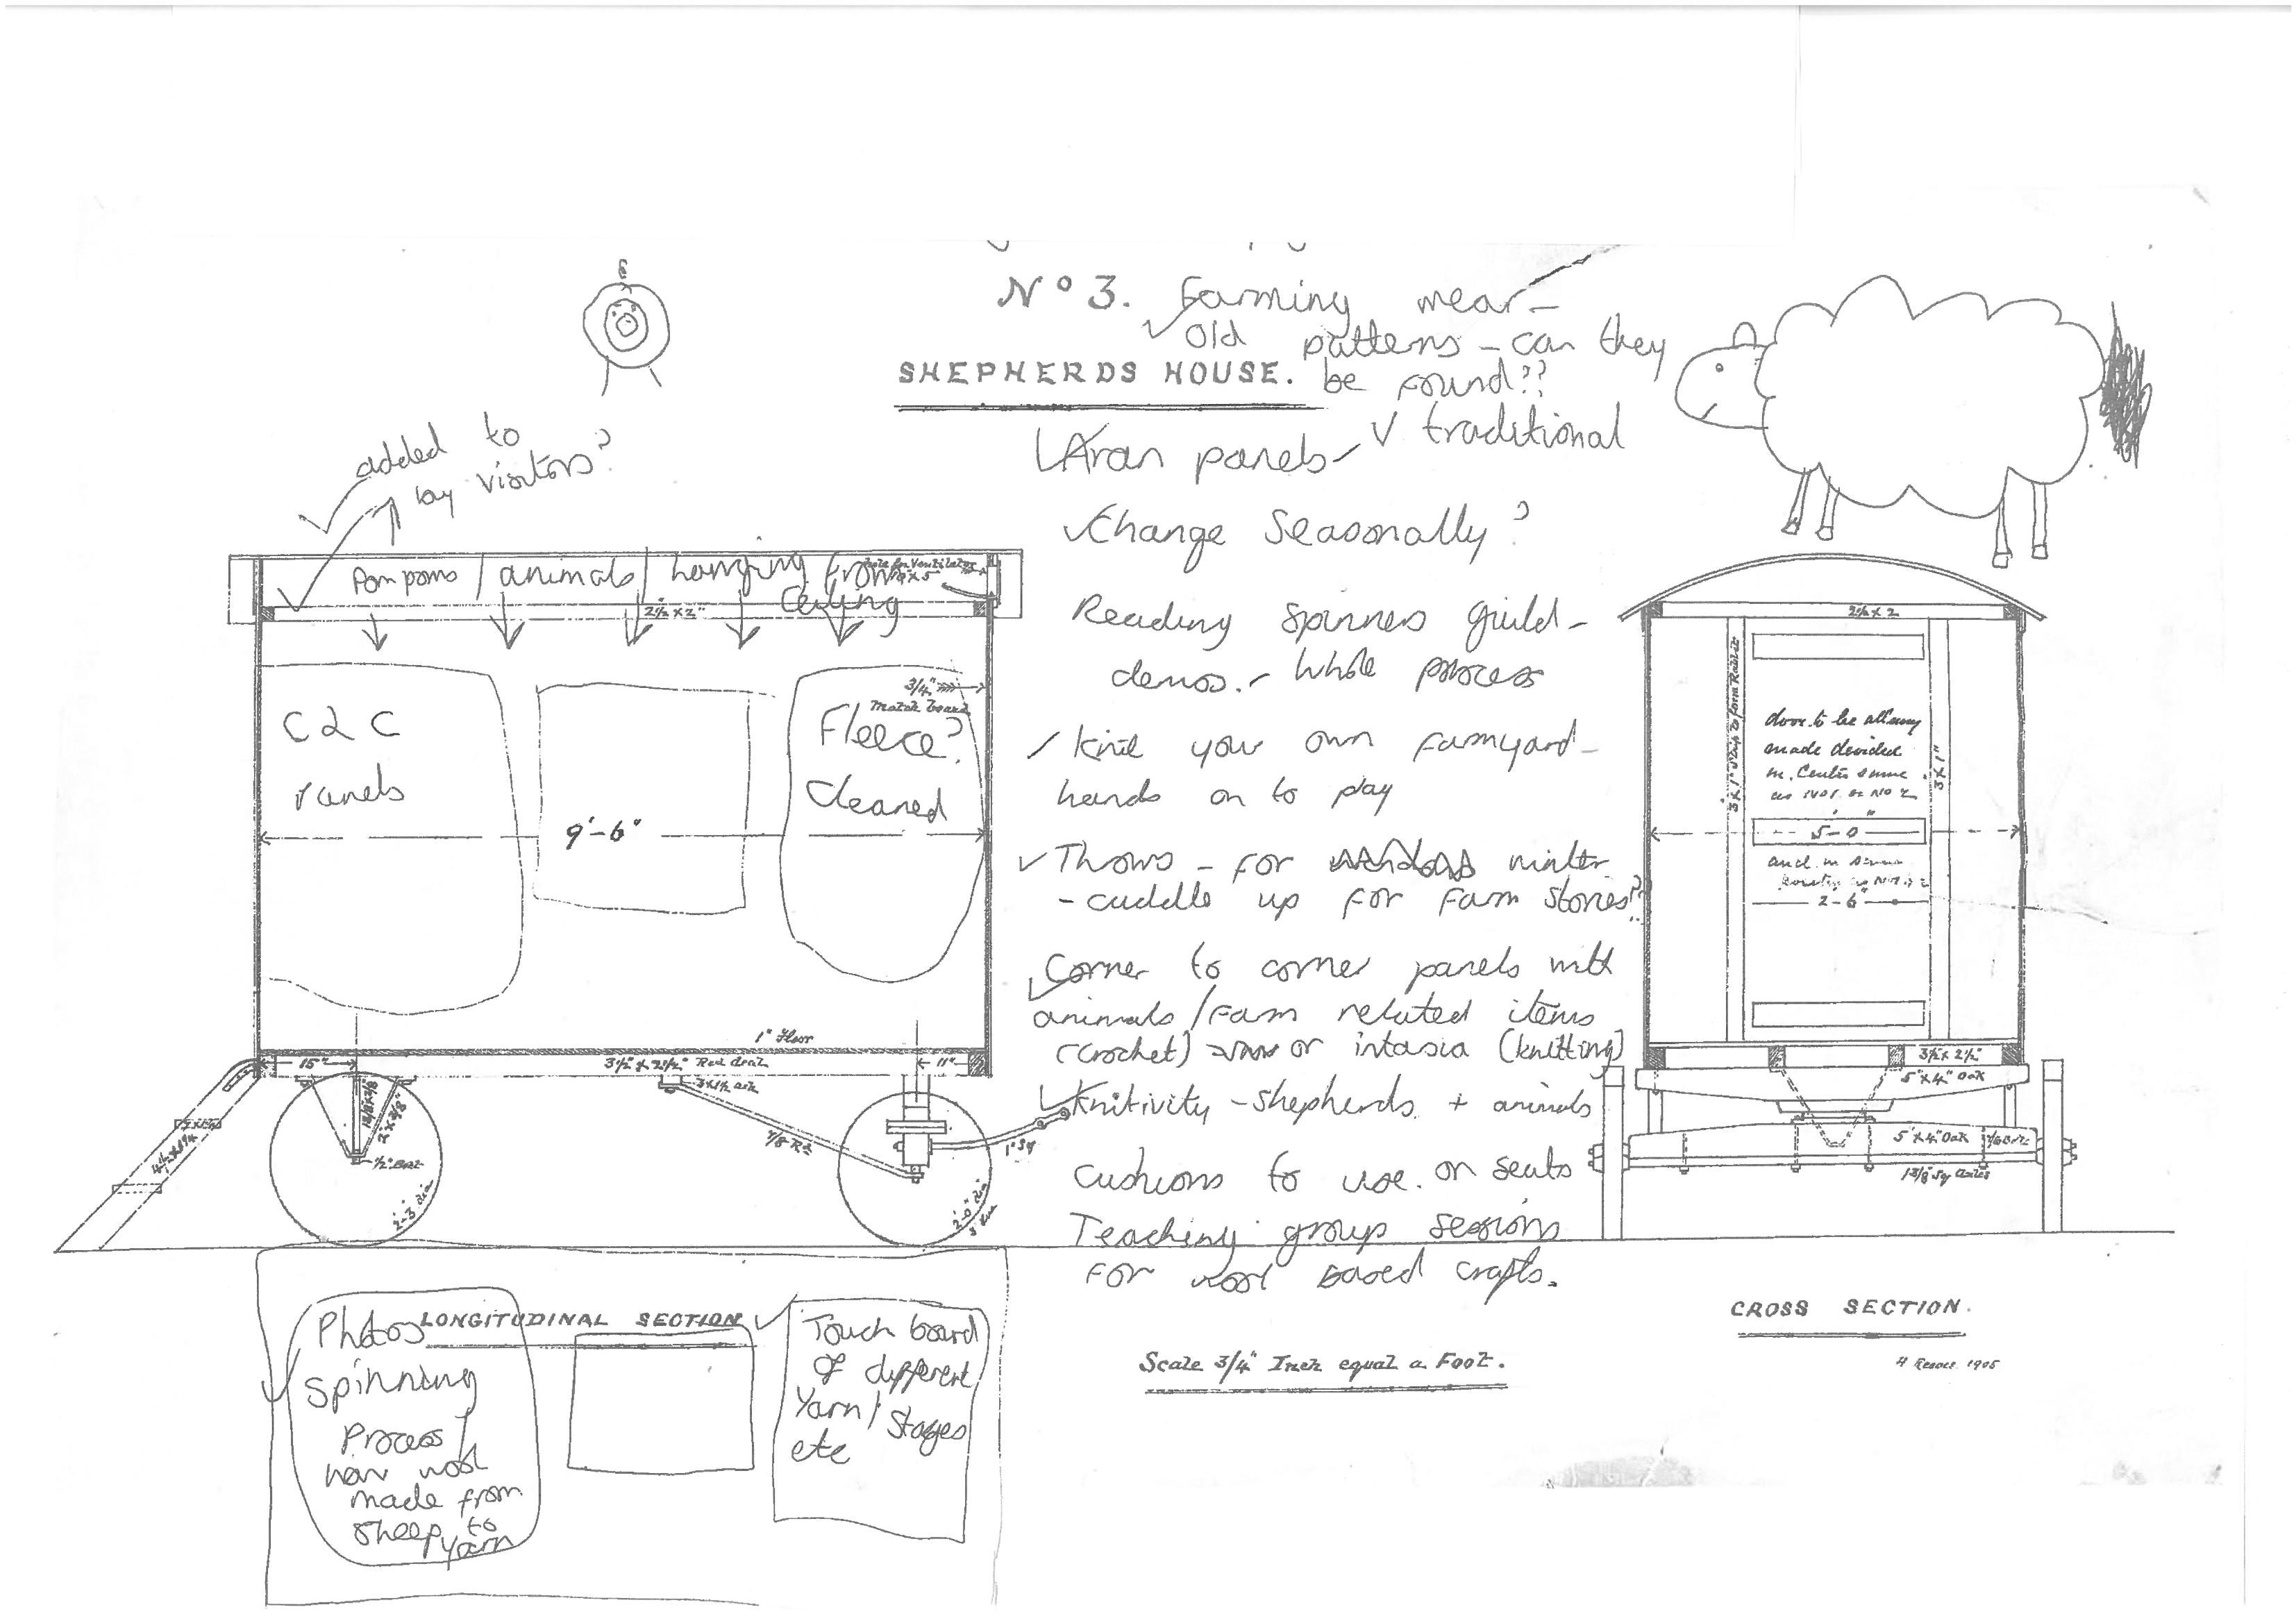 Nº 3. Farming wear -
✓ Old patterns - can they
be found??
SHEPHERDS HOUSE.
✓ traditional
✓ Aran panels -
✓ Change Seasonally?
Reading spinners guild -
demos. - whole process
/ Knit your own farmyard -
hands on to play
✓ Throws - for winter
- cuddle up for farm stories??
✓ Corner to corner panels with
animals / farm related items
(crochet) or intasia (knitting)
✓ Knitivity - shepherds + animals
Cushions to use. on seats
Teaching group sessions
for wool based crafts.
added to
by visitors?
Pom poms / animals / hanging from
ceiling
hole for Ventilator
2½ x 2"
C2C
Panels
Fleece?
Cleaned
3/4"
Match board
9'-6"
1" Floor
15"
3½" x 2½" Red deal
11"
½" Bolt
7/8 Rd
1" Sq
2'-3" dia
2'-0" dia
LONGITUDINAL SECTION
Photos
spinning
process /
how wool
made from
sheep to
yarn
✓ Touch board
of different
Yarn / stages
etc
2½ x 2
3 x 1"
3 x 1"
door to be
made devided
in Center same
as No 1 or No 2
5'-0"
and in same
2-6"
3½ x 2½"
5" x 4" Oak
5" x 4" Oak
1 3/8" Sq axles
CROSS SECTION.
Scale 3/4" Inch equal a Foot.
1905